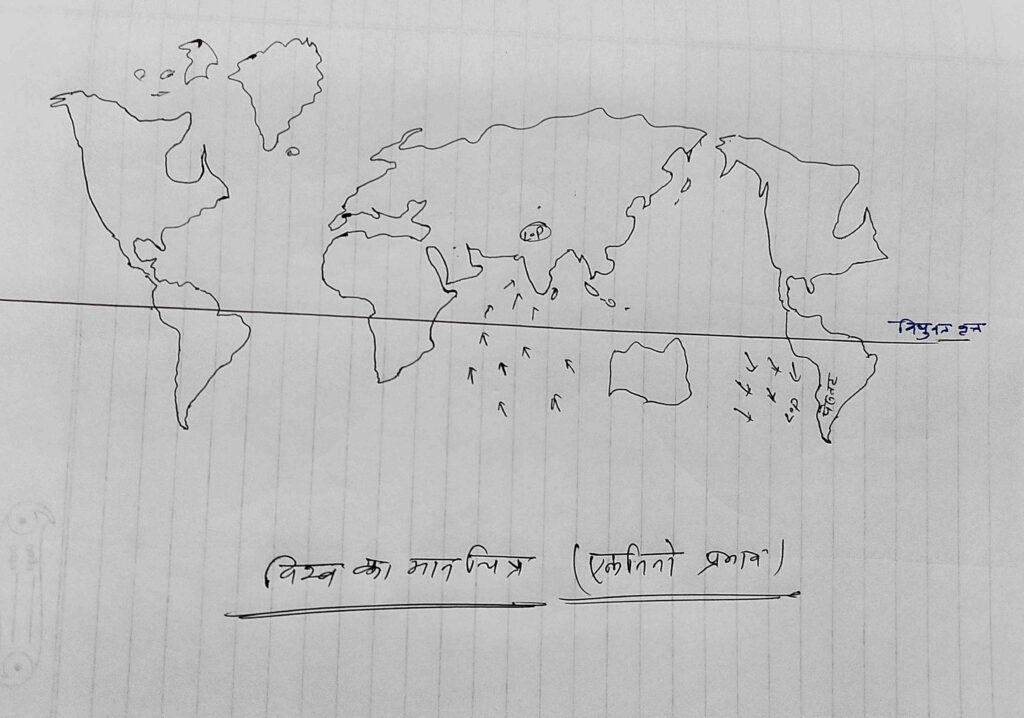 L.P
विषुवत वृत
L.P
पेरू तट
विश्व का मानचित्र (एलनिनो प्रभाव)